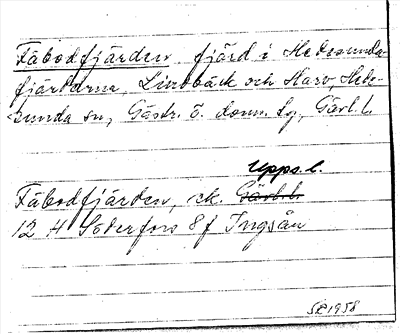 Fäbodfjärden fjärd i Hedesunda-
fjärdarna, Lindbäck och Harv, Hede-
sunda sn, Gästr. ö. doms. lg, Gävl. l.
Upps. l.
Fäbodfjärden, ek. Gävl. l.
12 H Söderfors 8 f Ingsån
1958